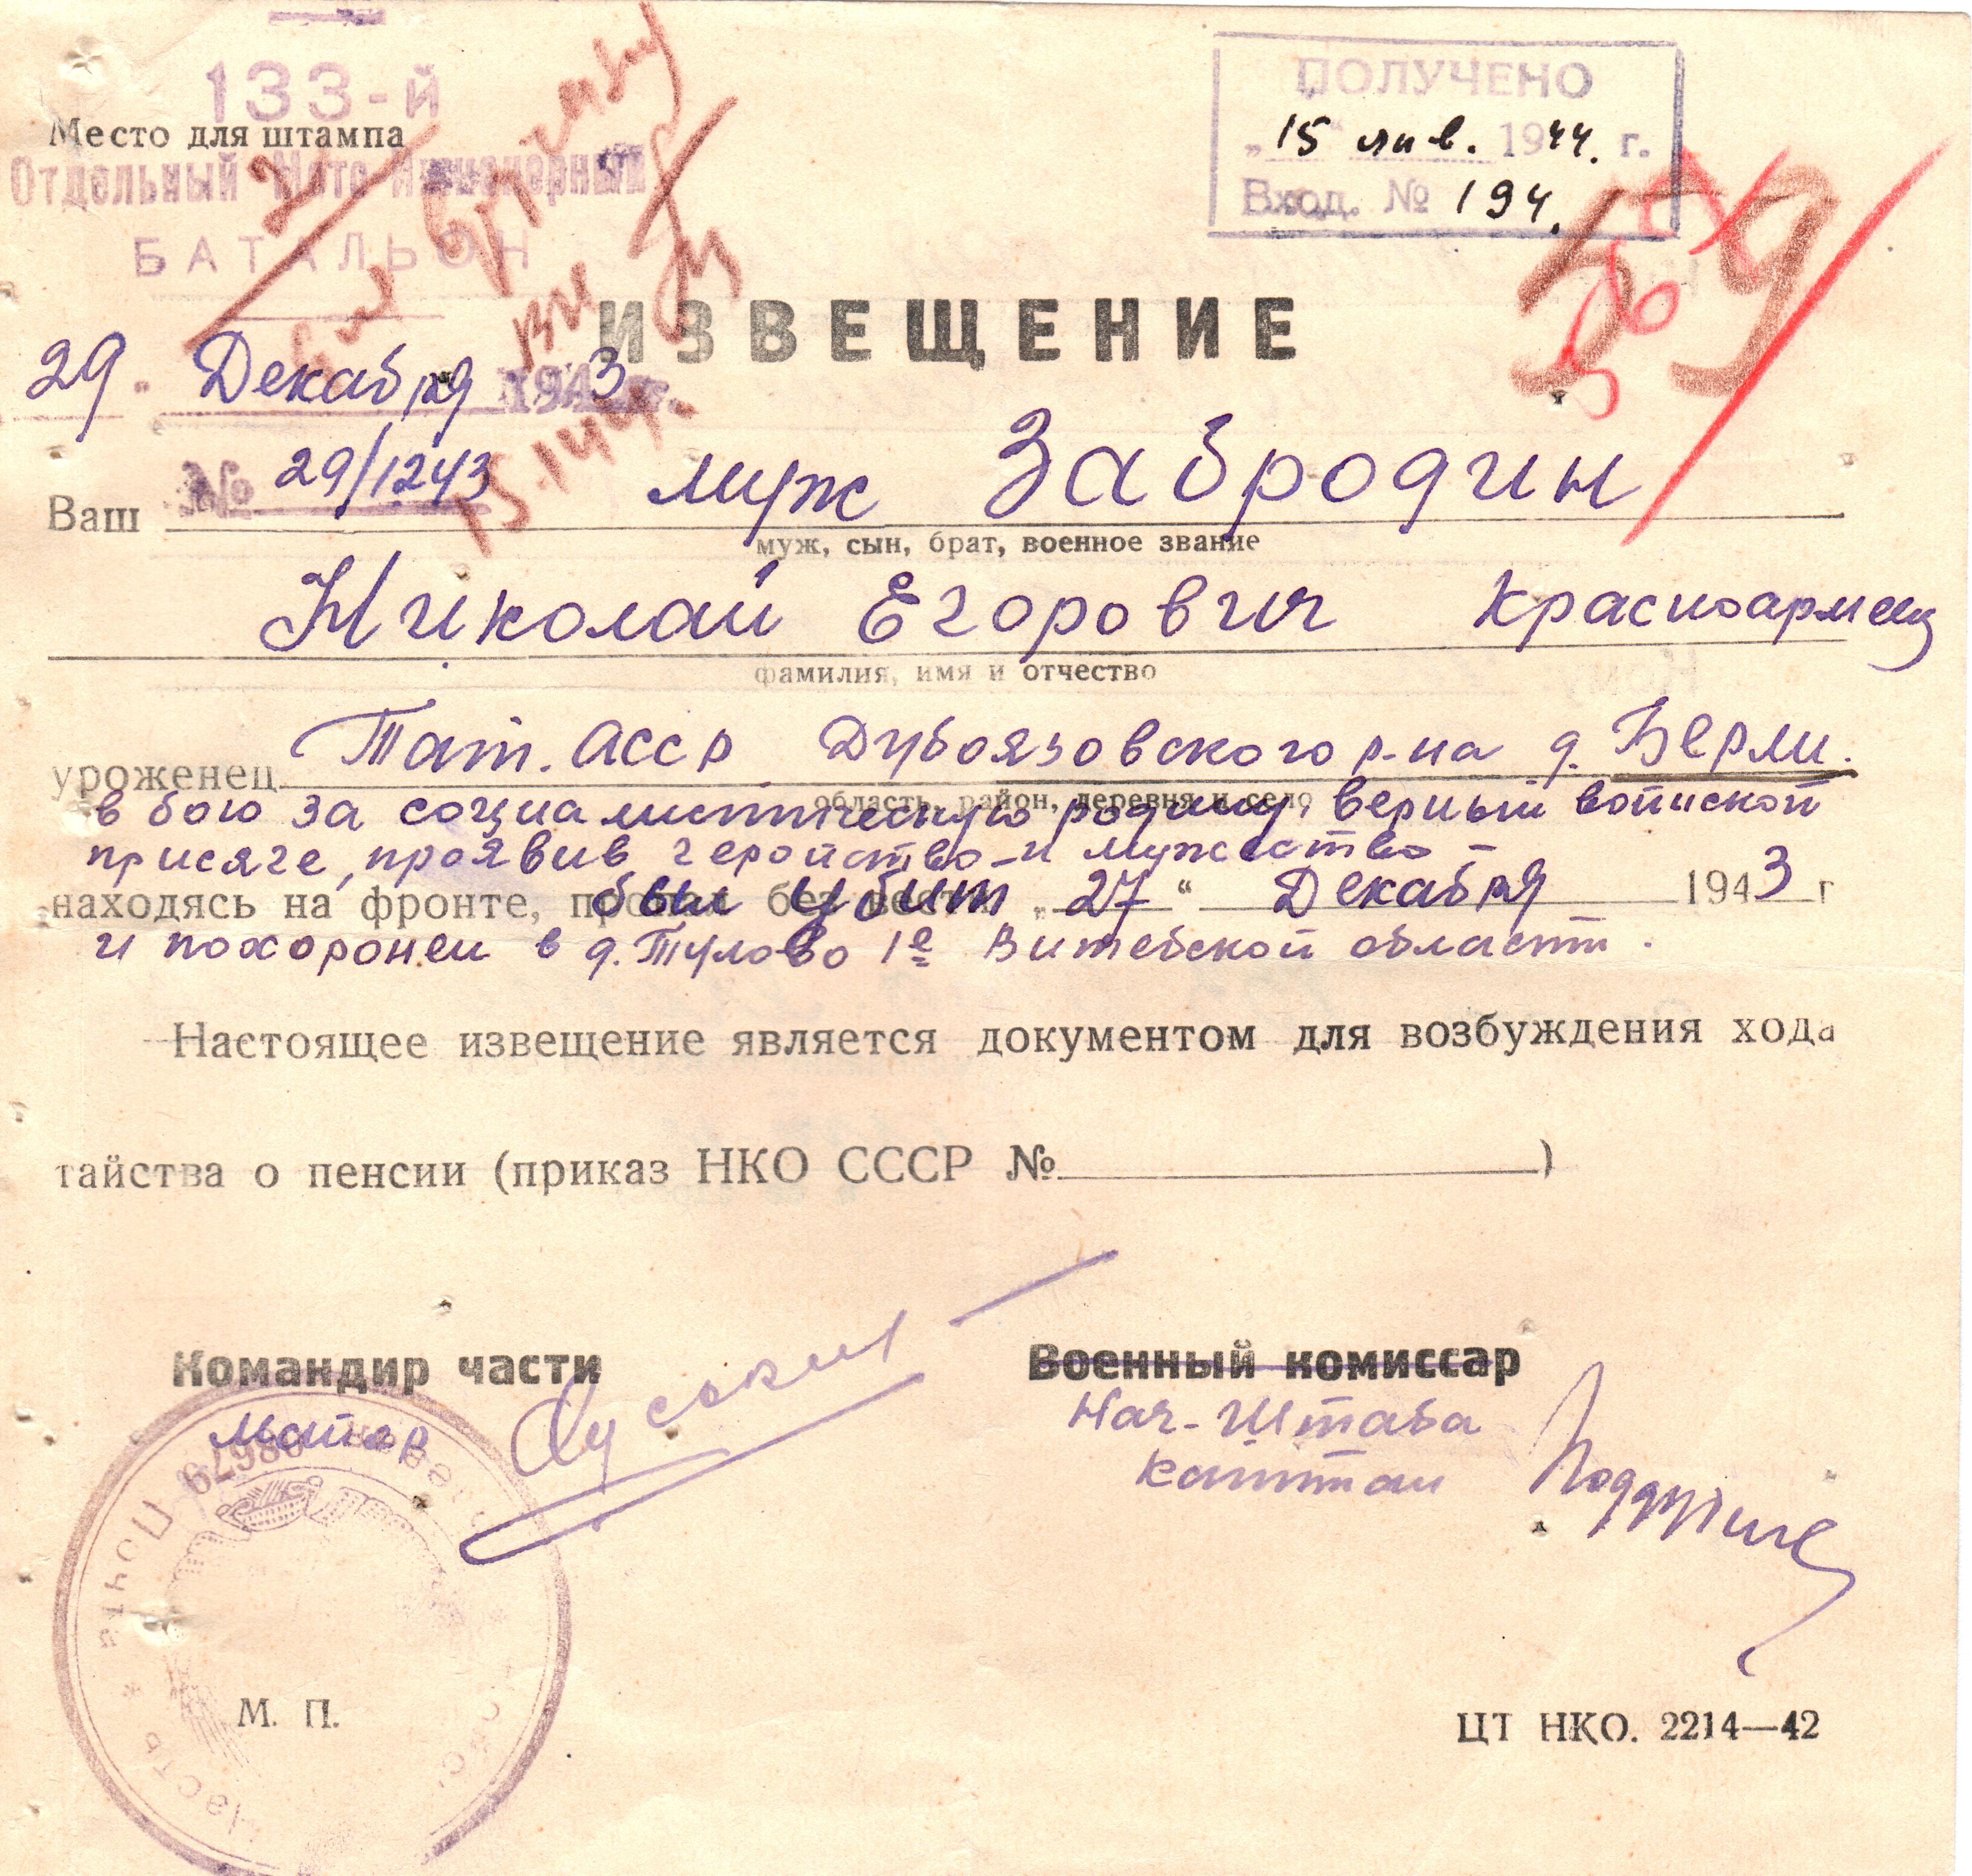 133-й
Место для штампа
Отдельный Мото Инженерный
БАТАЛЬОН
ПОЛУЧЕНО
„15" янв. 1944. г.
Вход. № 194.
ИЗВЕЩЕНИЕ
29 " Декабря 1943 г.
№ 29/1243
15.1.44г.
Ваш муж Забродин
муж, сын, брат, военное звание
Николай Егорович Красноармеец
фамилия, имя и отчество
уроженец Тат. АССР Дубоязовского р-на д. Берли.
область, район, деревня и село
в бою за социалистическую родину, верный воинской
присяге, проявив геройство и мужество -
находясь на фронте, пропал без вести был убит „27" Декабря 1943 г
и похоронен в д. Тулово 1е Витебской области.
Настоящее извещение является документом для возбуждения хода
тайства о пенсии (приказ НКО СССР № )
Командир части
Военный комиссар
Майор
Нач. Штаба
капитан
Полевая Почта
часть
М. П.
ЦТ НКО. 2214—42